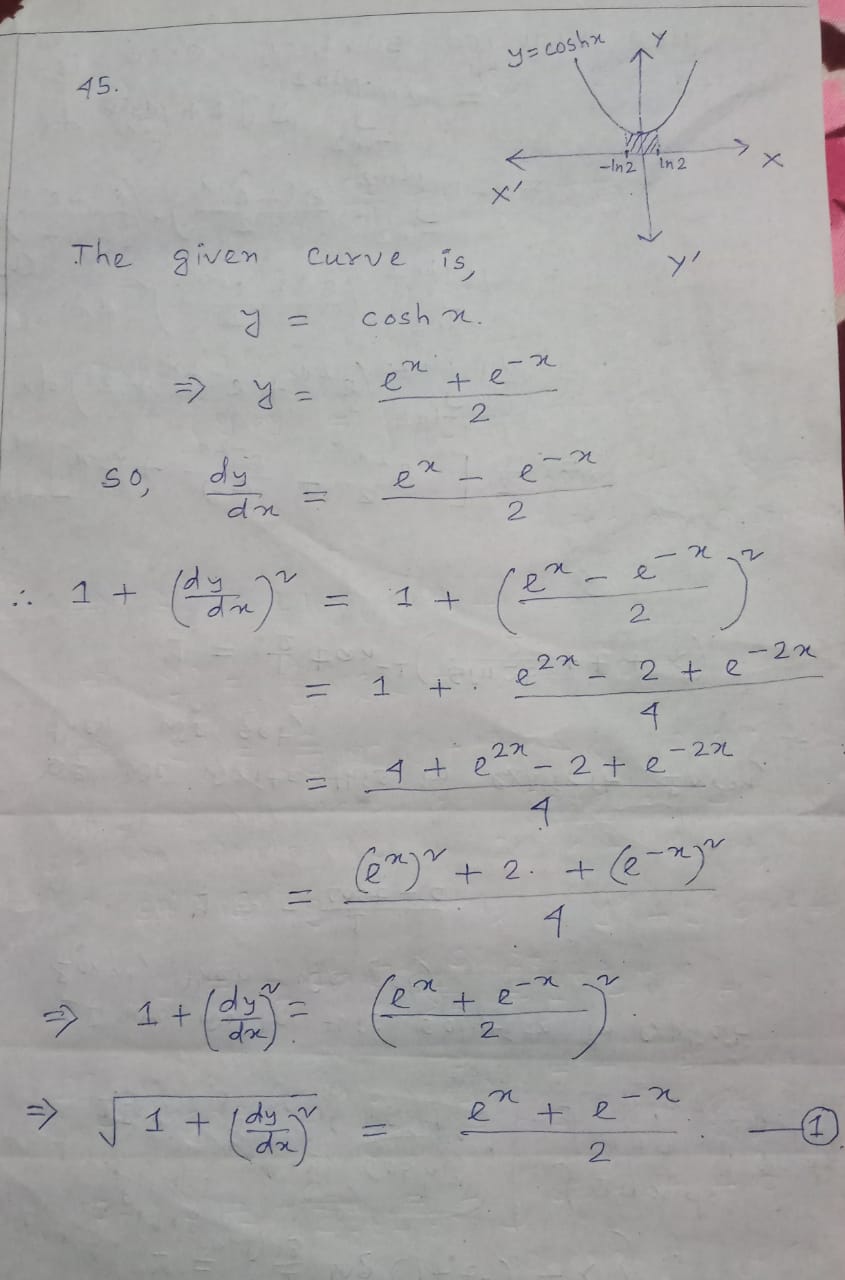 45.
y = coshx
Y
-ln2 ln2
X
X'
Y'
The given curve is,
y = cosh x.
⇒ y = (e^x + e^-x)/2
so, dy/dx = (e^x - e^-x)/2
∴ 1 + (dy/dx)^2 = 1 + ((e^x - e^-x)/2)^2
= 1 + (e^2x - 2 + e^-2x)/4
= (4 + e^2x - 2 + e^-2x)/4
= ((e^x)^2 + 2. + (e^-x)^2)/4
⇒ 1 + (dy/dx)^2 = ((e^x + e^-x)/2)^2
⇒ √(1 + (dy/dx)^2) = (e^x + e^-x)/2. —①